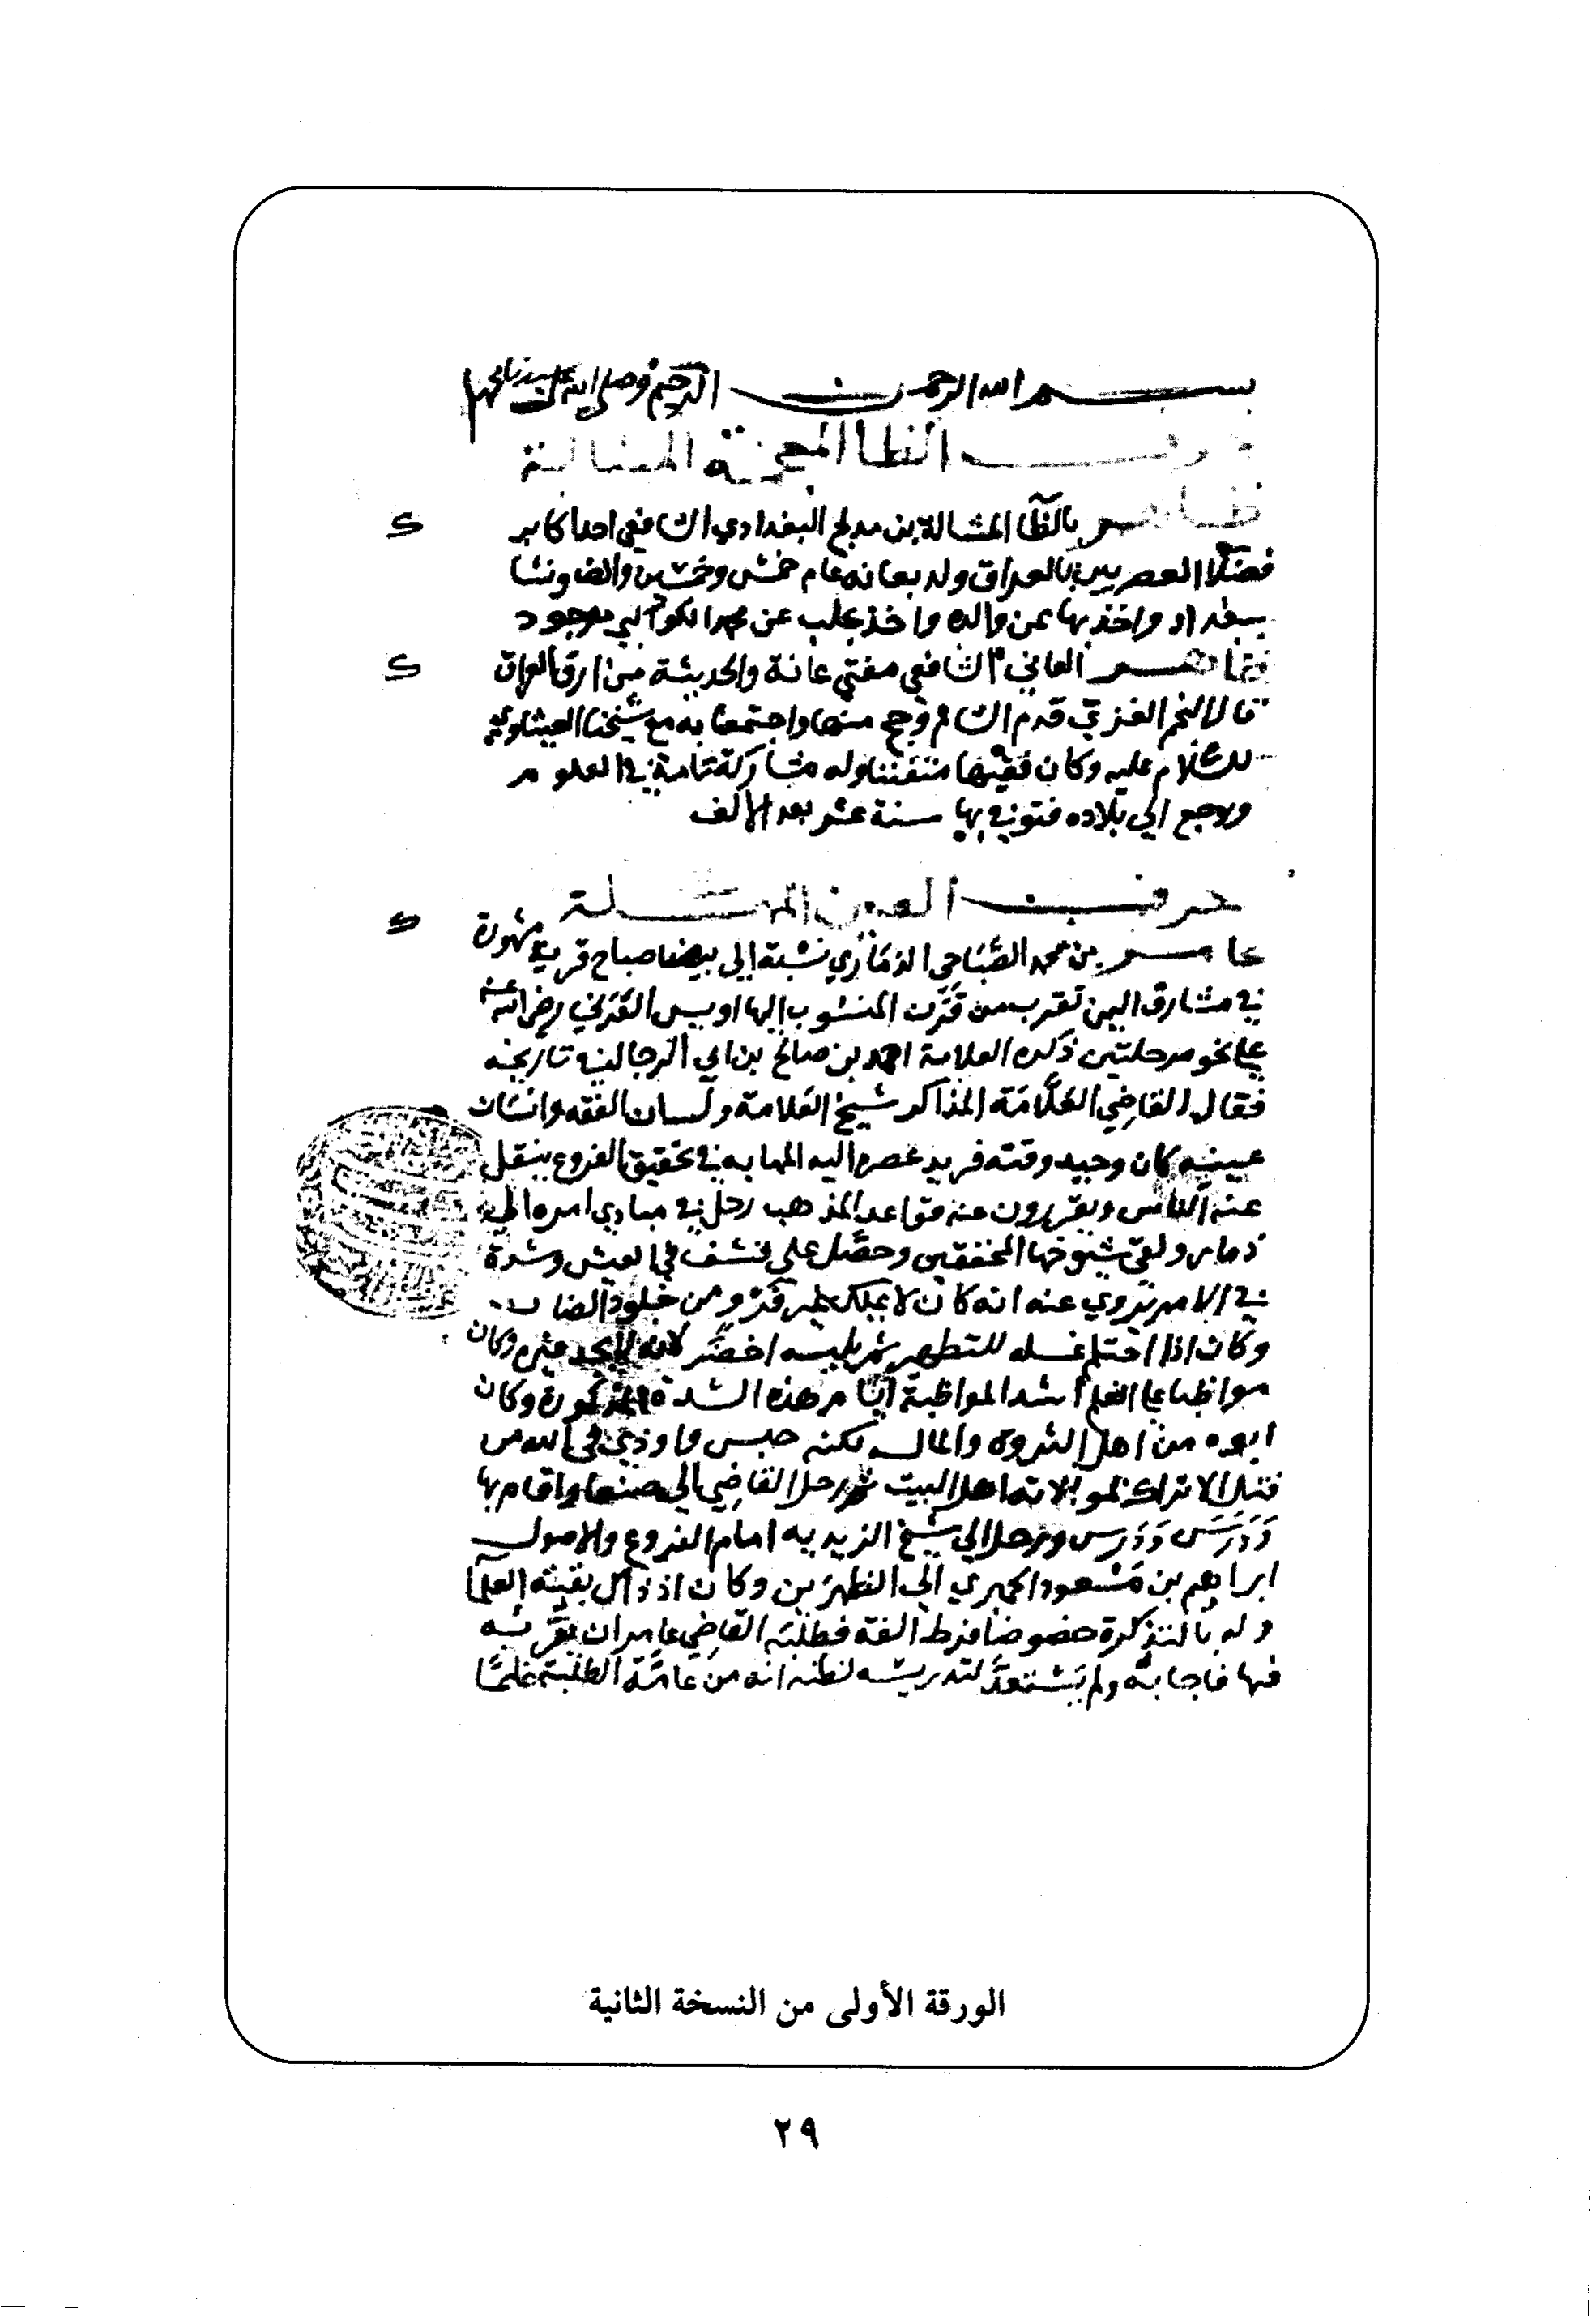 بسم الله الرحمن الرحيم وصلى الله على سيدنا محمد
حرف الظا المعجمة المشالة
ظاهر بالظا المشالة بن مدلج البغدادي الشافعي احد اكابر
فضلا العصريين بالعراق ولد بعانه عام خمس وخمسين والف ونشا
ببغداد واخذ بها عن والده واخذ بحلب عن محمد الكواكبي موجود
ظاهر العاني الشافعي مفتي عانة والحديثة من ارق العراق
قال النجم الغزي قدم الشام وحج منها واجتمعنا به مع شيخنا العيثاوي
للسلام عليه وكان فقيها متفننا وله مشاركة تامة في العلوم
ورجع الي بلاده فتوفي بها سنة عشر بعد الالف
حرف العين المهملة
عامر بن محمد الصباحي الذماري نسبة إلى بيضا صباح قرية مشهورة
في مشارق اليمن تقرب من قرن المنسوب إليها اويس القرني رضي الله عنه
علي نحو مرحلتين ذكره العلامة احمد بن صالح بن ابي الرجال في تاريخه
فقال القاضي العلامة المذاكر شيخ العلامة ولسان الفقه وانسان
عينيه كان وحيد وقته فريد عصره اليه النهايه في تحقيق الفروع ينقل
عنه الناس ويقررون عنه قواعد المذهب رحل في مبادي امره الي
ذمار ولقي شيوخها المحققين وحصل على قشف في العيش وشدة
في الامر يروي عنه انه كان لا يملك غير فرو من جلود الضان
وكان اذا احتلم غسله للتطهر ثم يلبسه اخضر لانه لا يجد غيره وكان
مواظبا علي العلم اشد المواظبة ايام هذه الشدة المذكورة وكان
ابوه من اهل الثروه والمال لكنه حبس واوذي في الله من
قبل الاتراك لموالاته اهل البيت ثم رحل القاضي الى صنعا واقام بها
دَرَسَ وَدَرَّس ورحل الي شيخ الزيديه امام الفروع والاصول
ابراهيم بن مسعود الحميري الي الظهرين وكان اذ ذاك بقية العلما
وله بالتذكرة خصوصا فرط الفة فطلبه القاضي عامر ان يقرئه
فيها فاجابه ولم يستعد لتدريسه لظنه انه من عامة الطلبة فلما
الورقة الأولى من النسخة الثانية
٢٩